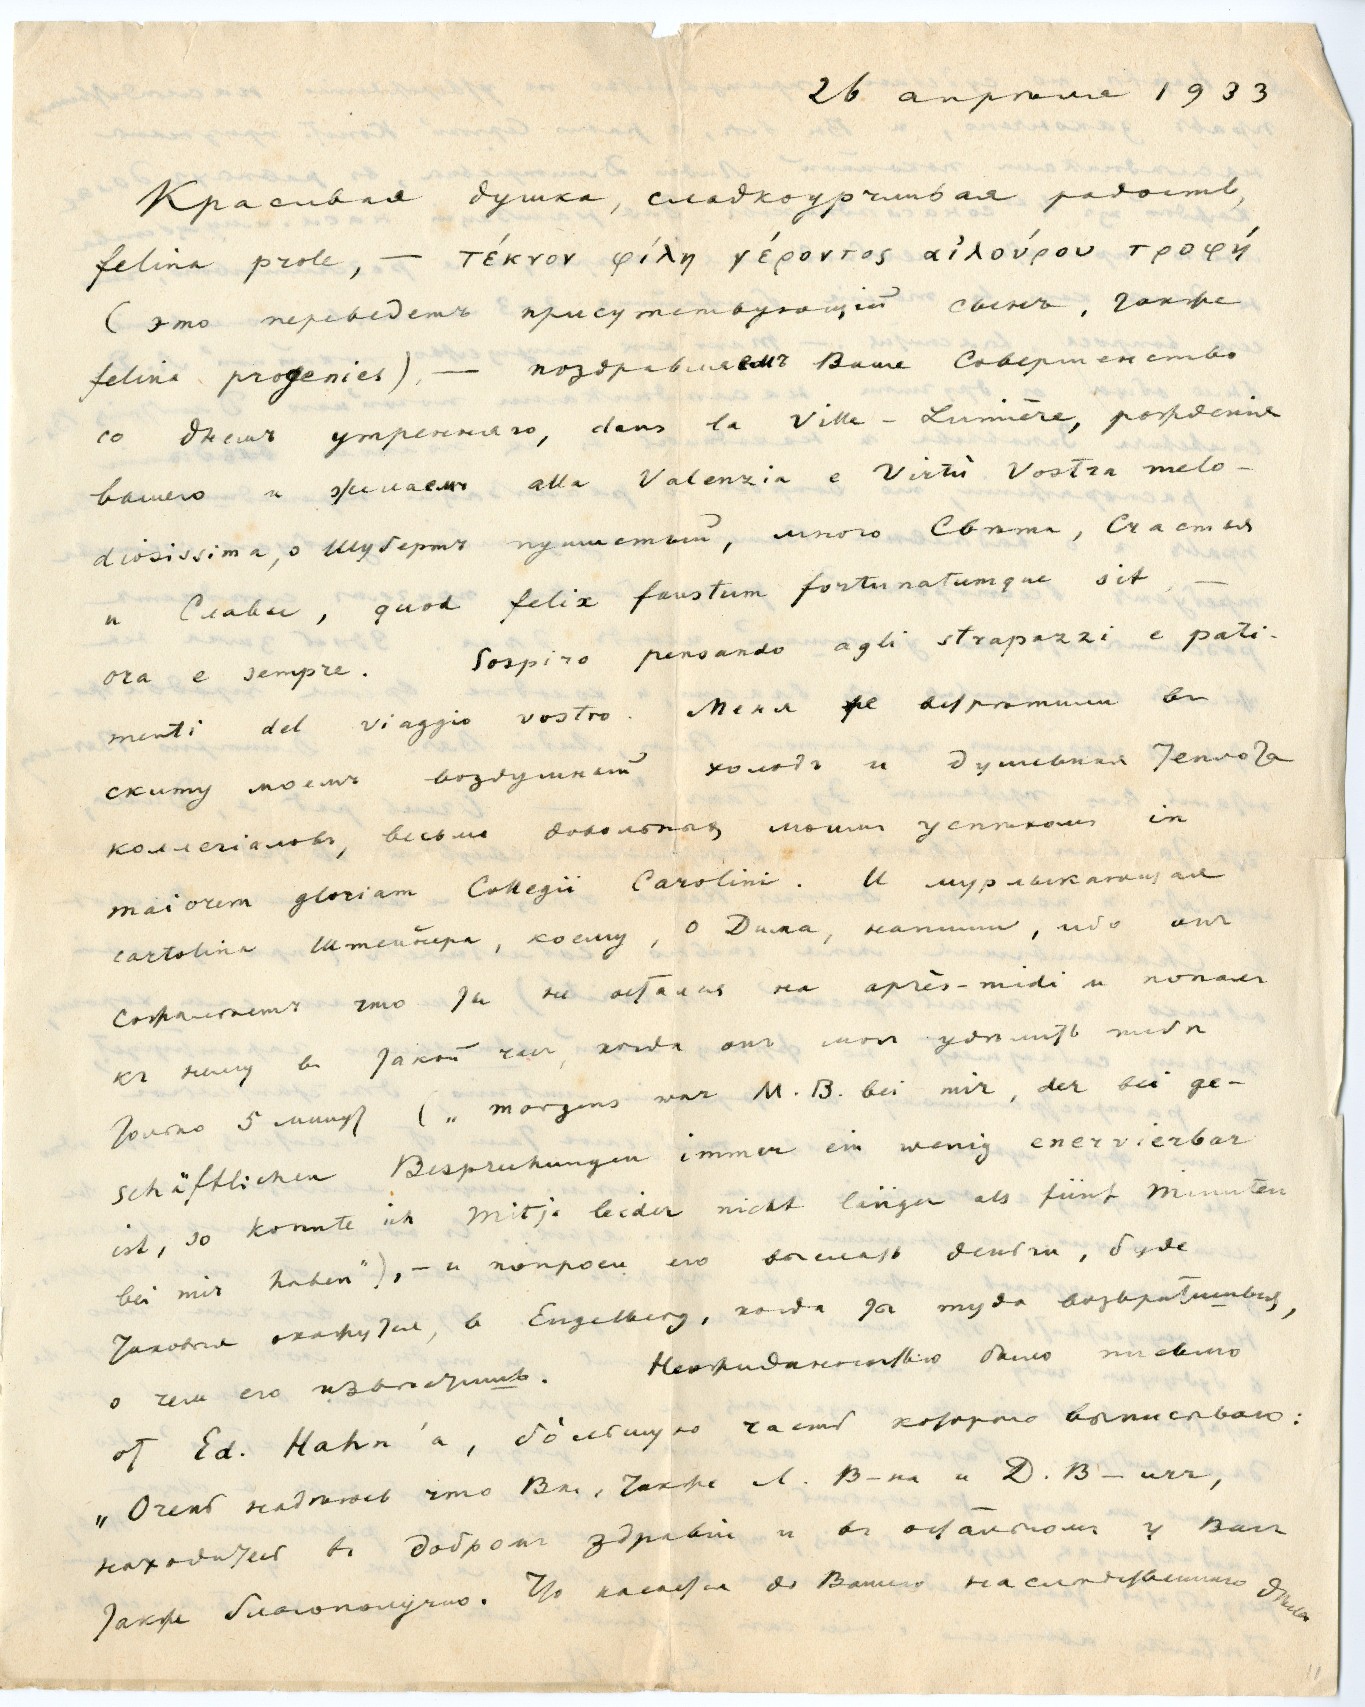 26 апрѣля 1933
Красивая душка, сладкоурчивая радость,
felina prole, — τέκνον φίλη γέροντος αἰλούρου τροφή
(это переведетъ присутствующій свенъ, также
felina progenies), — поздравляемъ Ваше Совершенство
со днемъ утренняго, dans la Ville-Lumière, рожденія
вашего и желаемъ alla Valenzia e Virtù Vostra melo-
diosissima, о Шубертъ пушистый, много Свѣта, Счастья
и Славы, quod felix faustum fortunatumque sit —
ora e sempre. Sospiro pensando agli strapazzi e pati-
menti del viaggio vostro. Меня же встрѣтили въ
скиту моемъ воздушный холодъ и душевная теплота
коллегіаловъ, весьма довольныхъ моимъ успѣхомъ in
maiorem gloriam Collegii Carolini. И мурлыкающая
cartolina Штейнера, коему, о Дима, напиши, ибо онъ
сожалѣетъ что ты не остался на après-midi и попалъ
къ нему въ такой часъ, когда онъ могъ удѣлить тебѣ
только 5 минутъ („morgens war M. B. bei mir, der bei ge-
schäftlichen Besprechungen immer ein wenig enervierbar
ist, so konnte ich Mitja leider nicht länger als fünf Minuten
bei mir haben"), — и попроси его выслать деньги, буде
таковыя окажутся, въ Engelberg, когда ты туда возвратишься,
о чемъ его извѣстишь. Неожиданностью было письмо
отъ Ed. Hahn'а, бо́льшую часть котораго выписываю:
„Очень надѣюсь что Вы, также Л. В-на и Д. В-ичъ,
находитесь въ добромъ здравіи и въ остальномъ у Васъ
также благополучно. Что касается до Вашего наслѣдственнаго дѣла